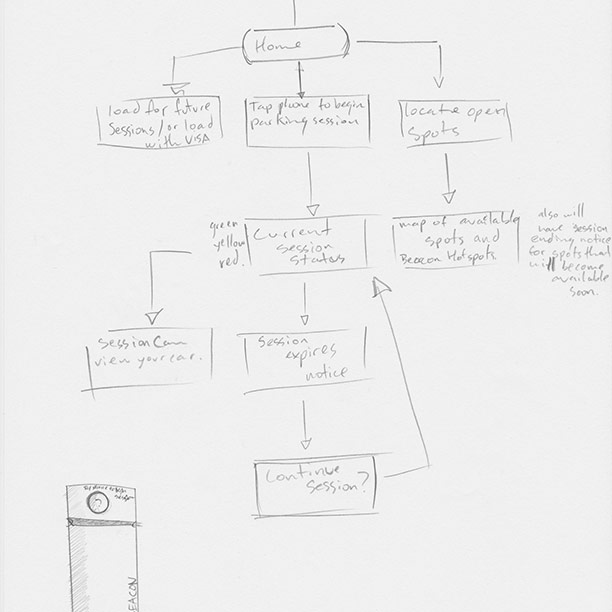 Home
load for future
Sessions/or load
with VISA
Tap phone to begin
parking session
locate open
spots
green
yellow
red.
Current
session
status
map of available
spots and
Beacon Hotspots
also will
have session
ending notice
for spots that
will become
available
soon.
session Cam
view your car.
Session
expires
notice
Continue
Session?
EACON